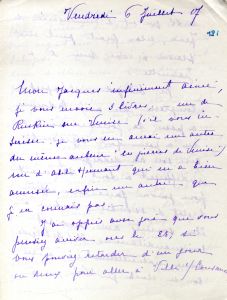 Vendredi 6 Juillet 07
Mon Jacques infiniment aimé,
je vous envoie 3 livres, un de
Ruskin sur Venise (s'il vous in-
téresse je vous en aurai un autre
du même auteur : les pierres de Venise)
un d'Abel Hermant qui m'a bien
amusée, enfin un autre que
je ne connais pas.
J'ai appris avec joie que vous
pensiez arriver vers le 25, si
vous pouvez retarder d'un jour
ou deux pour aller à